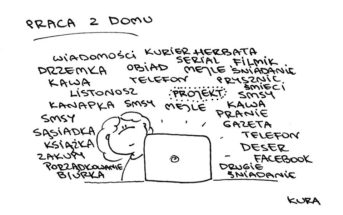 PRACA Z DOMU
WIADOMOŚCI KURIER HERBATA
SERIAL FILMIK
DRZEMKA OBIAD MEJLE ŚNIADANIE
KAWA TELEFON PRYSZNIC
LISTONOSZ PROJEKT ŚMIECI
SMSY
KANAPKA SMSY MEJLE KAWA
SMSY PRANIE
SĄSIADKA GAZETA
KSIĄŻKA TELEFON
ZAKUPY DESER
FACEBOOK
PORZĄDKOWANIE DRUGIE
BIURKA ŚNIADANIE
KURA